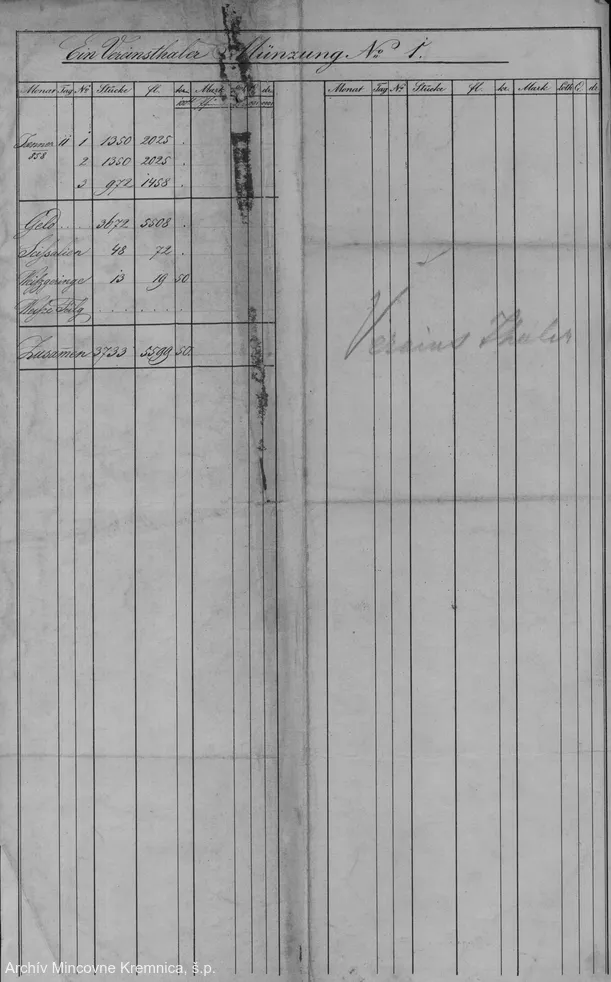 Ein Vereinsthaler Münzung No 1.
Monat Tag No Stücke fl. kr. Mark dr. Monat Tag No Stücke fl. kr. Mark Loth Q. dr.
Jänner 11 1 1350 2025 .
858 2 1350 2025 .
3 972 1458 .
Geld 3672 5508 .
Scissalien 48 72 .
13 19 50
. . . . . . .
Zusam̄en 3733 5599 50.
Vereins Thaler
Archív Mincovne Kremnica, š.p.